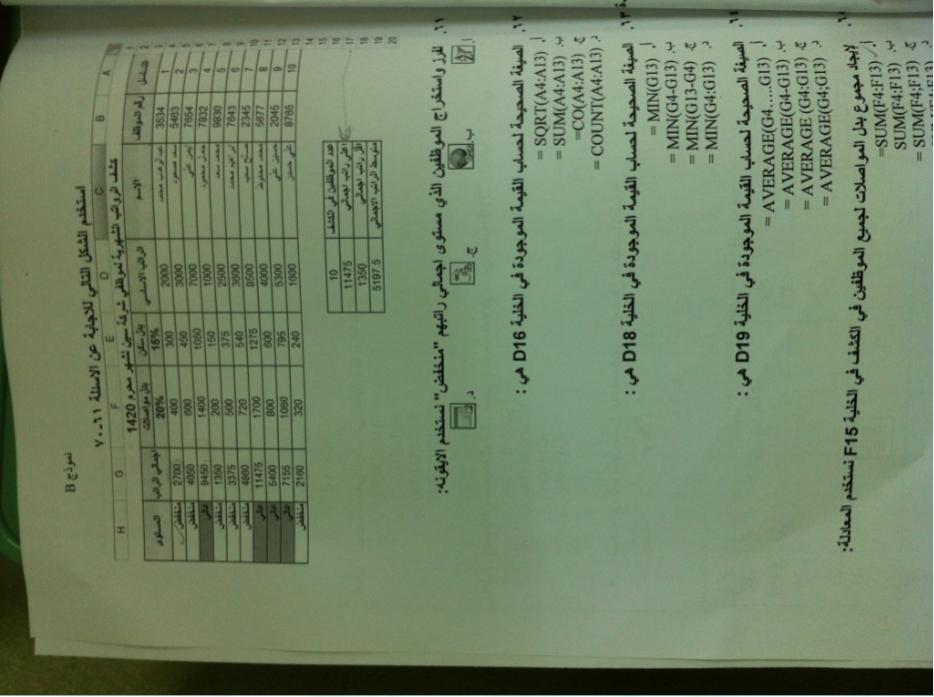 نموذج B
استخدم الشكل التالي للاجابة عن الاسئلة ١١-٧٠
H G F E D C B A
1 كشف الرواتب الشهرية لموظفي شركة سين لشهر محرم 1420
2 التسلسل رقم الموظف الاسم الراتب الاساسي بدل سكن بدل مواصلات اجمالي الراتب المستوى
3 15% 20%
4 1 3534 2000 300 400 2700 منخفض
5 2 5463 سعد مسعود 3000 450 600 4050 منخفض
6 3 7654 7000 1050 1400 9450 عالي
7 4 7832 1000 150 200 1350 منخفض
8 5 9830 محمد سعد 2500 375 500 3375 منخفض
9 6 7643 ابراهيم محمد 3600 540 720 4860 منخفض
10 7 2345 8500 1275 1700 11475 عالي
11 8 5677 4000 600 800 5400 عالي
12 9 2045 5300 795 1060 7155 عالي
13 10 8765 علي حسن 1600 240 320 2160 منخفض
14
15
16 عدد الموظفين في الكشف 10
17 اعلى راتب اجمالي 11475
18 اقل راتب اجمالي 1350
19 متوسط الراتب الاجمالي 5197.5
20
١١. لفرز واستخراج الموظفين الذي مستوى اجمالي راتبهم "منخفض" نستخدم الايقونه:
أ. ب. ج. د.
١٢. الصيغة الصحيحة لحساب القيمة الموجودة في الخلية D16 هي :
أ. = SQRT(A4:A13)
ب. = SUM(A4:A13)
ج. =CO(A4:A13)
د. = COUNT(A4:A13)
١٣. الصيغة الصحيحة لحساب القيمة الموجودة في الخلية D18 هي :
أ. = MIN(G13)
ب. = MIN(G4-G13)
ج. = MIN(G13-G4)
د. = MIN(G4:G13)
١٤. الصيغة الصحيحة لحساب القيمة الموجودة في الخلية D19 هي :
أ. = AVERAGE(G4.....G13)
ب. = AVERAGE(G4-G13)
ج. = AVERAGE (G4:G13)
د. = AVERAGE(G4;G13)
لايجاد مجموع بدل المواصلات لجميع الموظفين في الكشف في الخلية F15 نستخدم المعادلة:
أ. =SUM(F4:F13)
ب. SUM(F4:F13)
ج. = SUM(F4;F13)